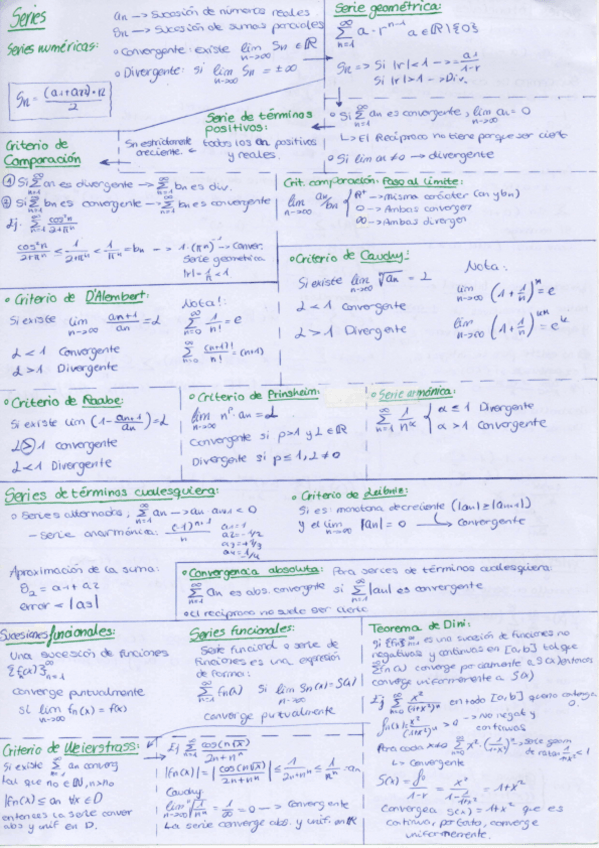 Series
an → Sucesión de números reales
Sn → Sucesión de sumas parciales
Series numéricas:
• Convergente: existe lim n→∞ Sn ∈ ℝ
• Divergente: Si lim n→∞ Sn = ±∞
Sn = (a1+an)·n / 2
Serie geométrica:
∞∑n=1 a·r^(n-1) a∈ℝ\{0}
Sn ⇒ Si |r|<1 → = a1/(1-r)
Si |r|>1 → Div.
Serie de términos positivos:
todos los an positivos y reales.
Sn estrictamente creciente.
• Si ∞∑n=1 an es convergente, lim n→∞ an = 0
↳ El Recíproco no tiene porque ser cierto
• Si lim an ≠ 0 → divergente
Criterio de Comparación
① Si ∞∑n=1 an es divergente → ∞∑n=1 bn es div.
② Si ∞∑n=1 bn es convergente → ∞∑n=1 an es convergente
Crit. comparación: Paso al límite:
lim n→∞ an/bn
→ Misma carácter (an y bn)
0 → Ambas convergen
∞ → Ambas divergen
Serie geometrica
|r| = 1/π < 1
• Criterio de Cauchy:
Si existe lim n→∞ ⁿ√an = L
L < 1 Convergente
L > 1 Divergente
Nota:
lim n→∞ (1+1/n)^n = e
• Criterio de D'Alembert:
Si existe lim n→∞ an+1/an = L
L < 1 Convergente
L > 1 Divergente
Nota!:
∞∑n=0 1/n! = e
(n+1)!/n! = (n+1)
• Criterio de Raabe:
Si existe lim (1 - an+1/an) = L
L > 1 Convergente
L < 1 Divergente
• Criterio de Prinsheim:
lim n→∞ n^p · an = L
Convergente si p>1 y L∈ℝ
Divergente si p≤1, L≠0
• Serie armónica:
∞∑n=1 1/n^α
α ≤ 1 Divergente
α > 1 Convergente
Series de términos cualesquiera:
• Series alternadas, ∞∑n=1 an → an·an+1 < 0
- serie anarmónica: (-1)^(n+1)/n
a1=1
a2=-1/2
a3=+1/3
a4=-1/4
• Criterio de Leibniz:
Si es: monotona decreciente (|an| ≥ |an+1|)
y el lim n→∞ |an| = 0 → Convergente
Aproximación de la suma:
S2 = a1 + a2
error < |a3|
• Convergencia absoluta: Para series de términos cualesquiera:
∞∑n=1 an es abs. convergente si ∞∑n=1 |an| es convergente
• El recíproco no suele ser cierto
Sucesiones funcionales:
Una sucesión de funciones
{f(x)}∞n=1
converge puntualmente
si lim n→∞ fn(x) = f(x)
Series funcionales:
Serie funcional o serie de
funciones es una expresión
de forma:
∞∑n=1 fn(x) si lim n→∞ Sn(x) = S(x)
converge puntualmente
Teorema de Dini:
Si {fn}∞n=1 es una sucesión de funciones no
negativas y continuas en [a,b] tal que
∑fn(x) converge puntualmente a S(x) entonces
converge uniformemente a S(x)
Ej ∞∑n=0 x²/(1+x²)^n en todo [a,b]
x²/(1+x²)^n > 0 → No negat y
continuas
↳ Convergente
S(x) = = 1+x²
Converge a S(x) = 1+x² que es
continua, por tanto, converge
uniformemente.
Criterio de Weierstrass:
Si existe ∞∑n=1 an converg
tal que n0∈ℕ, n>n0
|fn(x)| ≤ an ∀x∈D
entonces la serie conver
abs y unif en D.
Cauchy:
= 1/∞ = 0 → Convergente
La serie converge abs. y unif. en ℝ